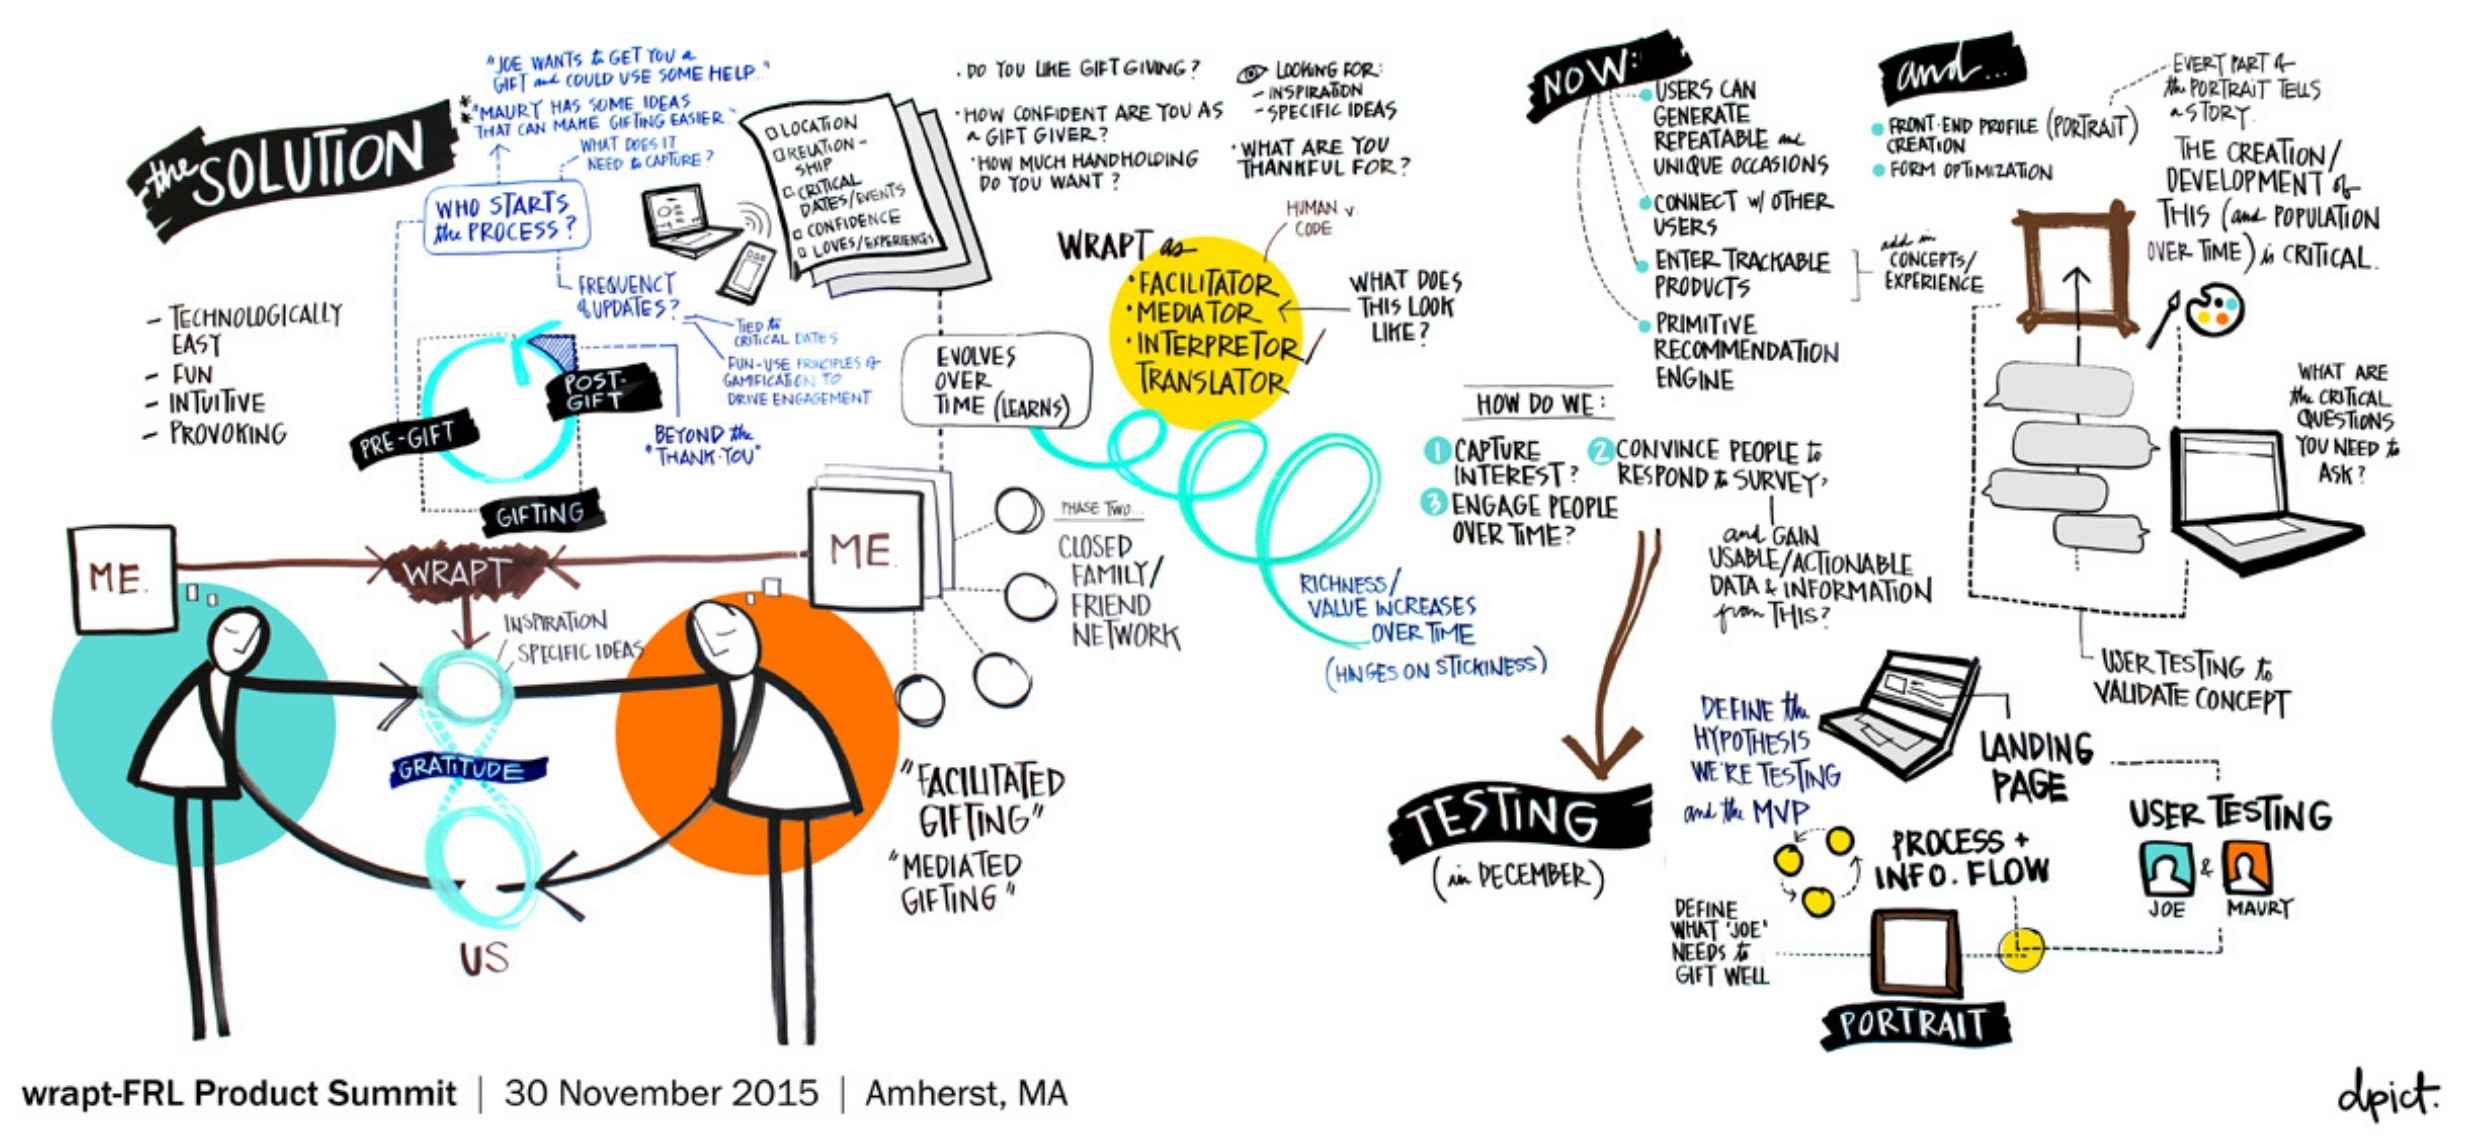 the SOLUTION
- TECHNOLOGICALLY
EASY
- FUN
- INTUITIVE
- PROVOKING
"JOE WANTS to GET YOU a
GIFT and COULD USE SOME HELP."
"MAURY HAS SOME IDEAS
THAT CAN MAKE GIFTING EASIER
WHAT DOES IT
NEED to CAPTURE?
WHO STARTS
the PROCESS?
FREQUENCY
& UPDATES?
TIED to
CRITICAL DATES
FUN-USE PRINCIPLES of
GAMIFICATION TO
DRIVE ENGAGEMENT
POST-
GIFT
PRE-GIFT
GIFTING
BEYOND the
"THANK-YOU"
LOCATION
RELATION-
SHIP
CRITICAL
DATES/EVENTS
CONFIDENCE
LOVES/EXPERIENCES
· DO YOU LIKE GIFT GIVING?
· HOW CONFIDENT ARE YOU AS
a GIFT GIVER?
· HOW MUCH HANDHOLDING
DO YOU WANT?
LOOKING FOR:
- INSPIRATION
- SPECIFIC IDEAS
· WHAT ARE YOU
THANKFUL FOR?
HUMAN v.
CODE
WRAPT as
· FACILITATOR
· MEDIATOR
· INTERPRETOR/
TRANSLATOR
WHAT DOES
THIS LOOK
LIKE?
EVOLVES
OVER
TIME (LEARNS)
ME.
WRAPT
ME.
INSPIRATION
SPECIFIC IDEAS
GRATITUDE
US
PHASE TWO...
CLOSED
FAMILY/
FRIEND
NETWORK
"FACILITATED
GIFTING"
"MEDIATED
GIFTING"
RICHNESS/
VALUE INCREASES
OVER TIME
(HINGES ON STICKINESS)
NOW:
USERS CAN
GENERATE
REPEATABLE and
UNIQUE OCCASIONS
CONNECT w/ OTHER
USERS
ENTER TRACKABLE
PRODUCTS
PRIMITIVE
RECOMMENDATION
ENGINE
add in
CONCEPTS/
EXPERIENCE
and...
FRONT-END PROFILE (PORTRAIT)
CREATION
FORM OPTIMIZATION
EVERY PART of
the PORTRAIT TELLS
a STORY.
THE CREATION/
DEVELOPMENT of
THIS (and POPULATION
OVER TIME) is CRITICAL.
WHAT ARE
the CRITICAL
QUESTIONS
YOU NEED to
ASK?
HOW DO WE:
1 CAPTURE
INTEREST?
2 CONVINCE PEOPLE to
RESPOND to SURVEY,
3 ENGAGE PEOPLE
OVER TIME?
and GAIN
USABLE/ACTIONABLE
DATA & INFORMATION
from THIS?
USER TESTING to
VALIDATE CONCEPT
TESTING
(in DECEMBER)
DEFINE the
HYPOTHESIS
WE'RE TESTING
and the MVP
LANDING
PAGE
PROCESS +
INFO. FLOW
USER TESTING
&
JOE
MAURY
DEFINE
WHAT 'JOE'
NEEDS to
GIFT WELL
PORTRAIT
wrapt-FRL Product Summit | 30 November 2015 | Amherst, MA
dpict.